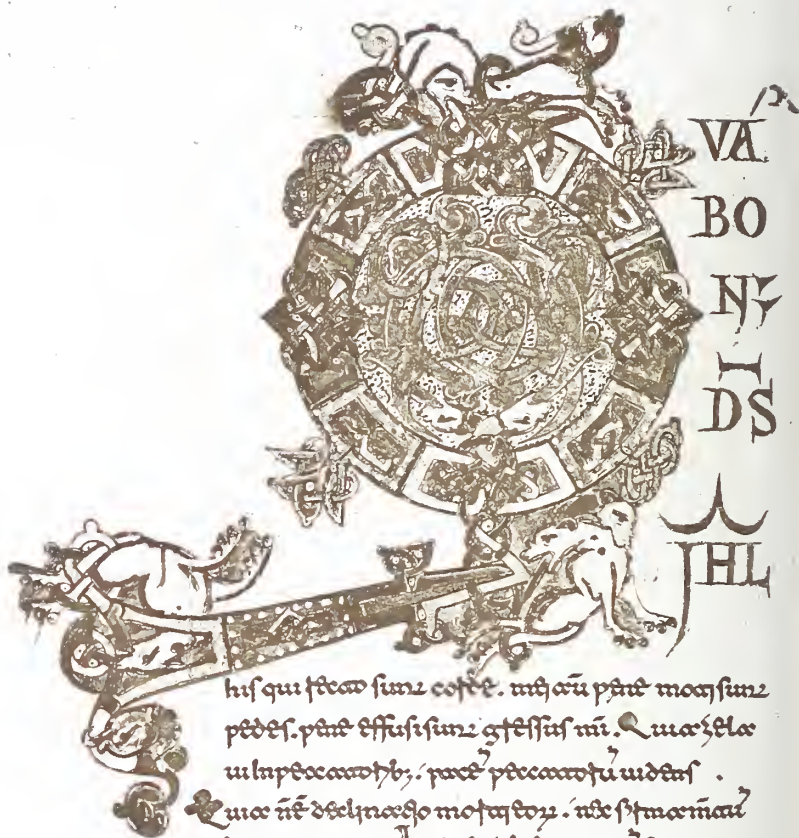 Q
VÁ
BO
N;
DS
IHL
his qui recto sunt corde. mei aū pene moti sunt
pedes. pene effusi sunt gressus mī. Quia zela
ui in peccatorib; pace peccatorū uidens.
Quia nē declinatio morti eorū. nec